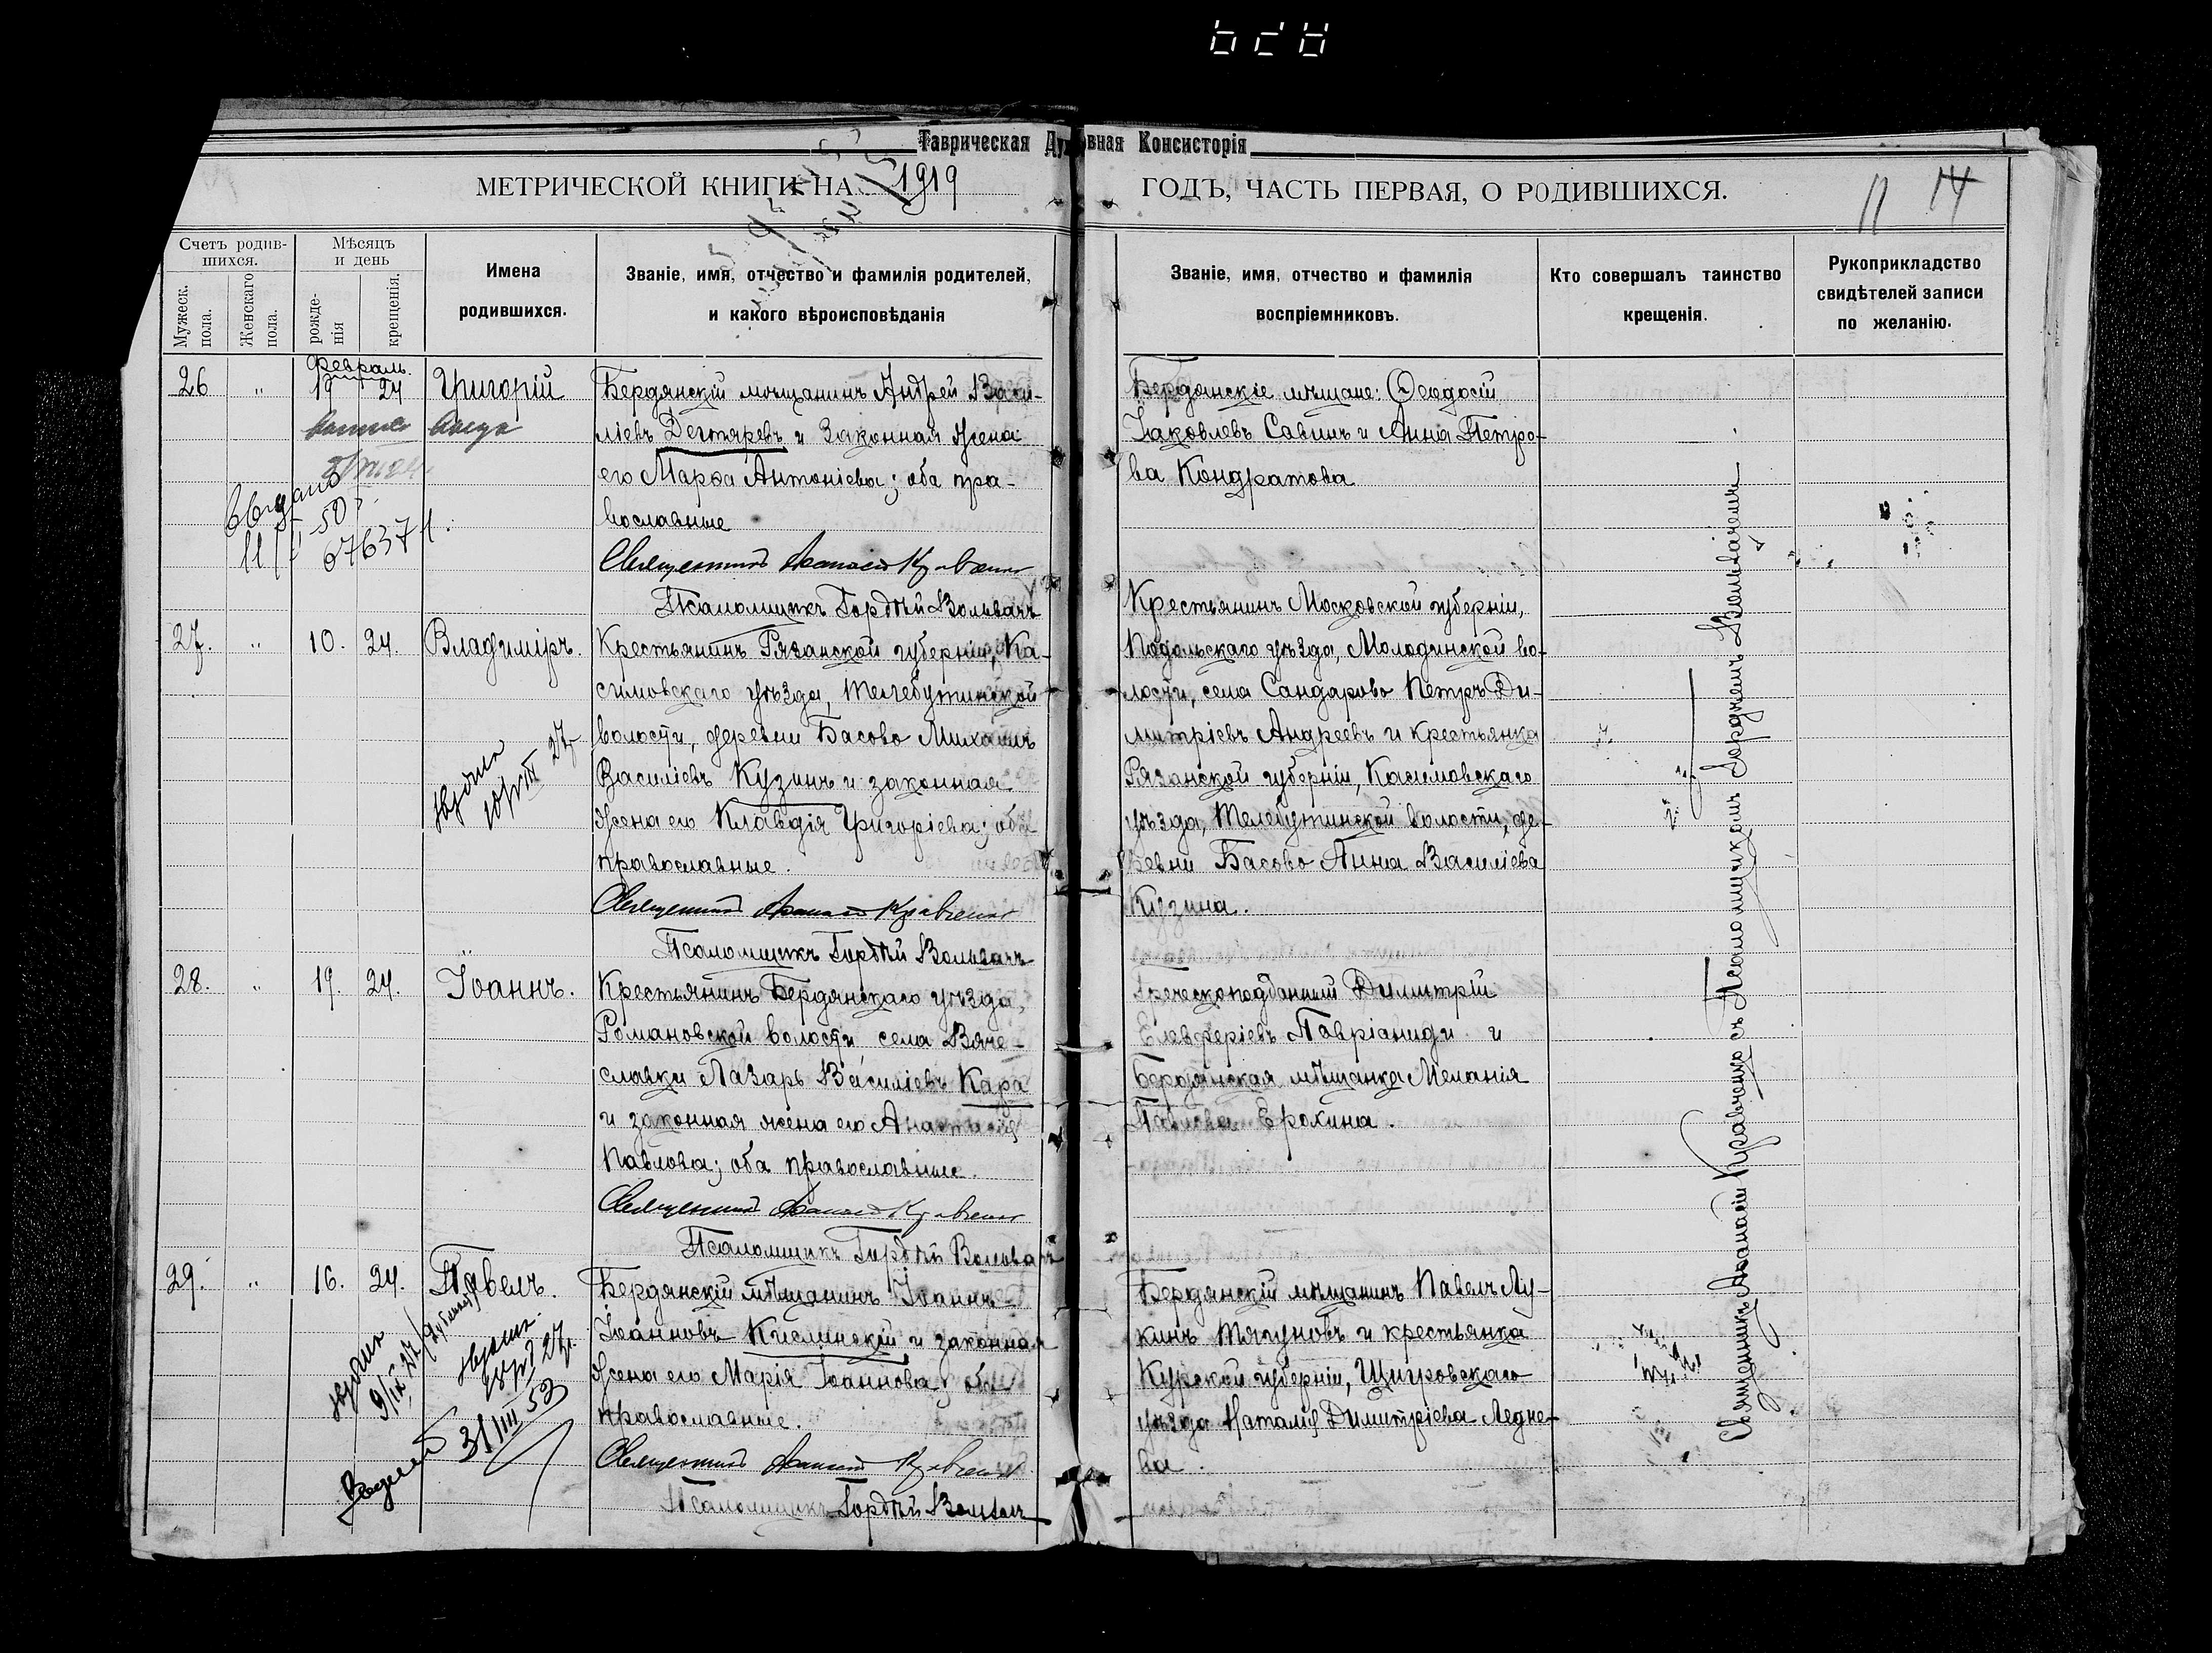 Таврическая Духовная Консисторія
МЕТРИЧЕСКОЙ КНИГИ НА 1919
ГОДЪ, ЧАСТЬ ПЕРВАЯ, О РОДИВШИХСЯ.
11 14
Счетъ родив-
шихся.
Мужеск.
пола.
Женскаго
пола.
Мѣсяцъ
и день
рожде-
нія
крещенія.
Имена
родившихся.
Званіе, имя, отчество и фамилія родителей,
и какого вѣроисповѣданія
Званіе, имя, отчество и фамилія
воспріемниковъ.
Кто совершалъ таинство
крещенія.
Рукоприкладство
свидѣтелей записи
по желанію.
Февраль.
26 " 19 24 Григорій
Бердянскій мѣщанинъ Андрей Васи-
ліевъ Дегтяревъ и законная жена
его Марѳа Антоніева; оба пра-
вославные
Священникъ Аѳанасій Кравченко
Псаломщикъ Гордѣй Вольвачъ
Бердянскіе мѣщане: Ѳеодосій
Іаковлевъ Савинъ и Анна Петро-
ва Кондратова
Выдано
50
11/V 676371
27. " 10. 24. Владиміръ.
Крестьянинъ Рязанской губерніи, Ка-
симовскаго уѣзда, Телебутинской
волости, деревни Басово Михаилъ
Василіевъ Кузинъ и законная
жена его Клавдія Григоріева; оба
православные.
Священникъ Аѳанасій Кравченко
Псаломщикъ Гордѣй Вольвачъ
Крестьянинъ Московской губерніи,
Подольскаго уѣзда, Молодинской во-
лости, села Сандарово Петръ Ди-
митріевъ Андреевъ и крестьянка
Рязанской губерніи, Касимовскаго
уѣзда, Телебутинской волости, де-
ревни Басово Анна Василіева
Кузина.
28. " 19. 24. Іоаннъ.
Крестьянинъ Бердянскаго уѣзда,
Романовской волости, села Вяче-
славки Лазарь Василіевъ Кара
и законная жена его Анастасія
Павлова; оба православные.
Священникъ Аѳанасій Кравченко
Псаломщикъ Гордѣй Вольвачъ
Греческоподданный Димитрій
Елевферіевъ Лавріаниди и
Бердянская мѣщанка Меланія
Павлова Ерохина.
29. " 16. 24. Павелъ.
Бердянскій мѣщанинъ Іоаннъ
Іоанновъ Кислинскій и законная
жена его Марія Іоаннова; оба
православные.
Священникъ Аѳанасій Кравченко
Псаломщикъ Гордѣй Вольвачъ
Бердянскій мѣщанинъ Павелъ Лу-
кинъ Тягуновъ и крестьянка
Курской губерніи, Щигровскаго
уѣзда Наталія Димитріева Ледне-
ва.
9/IX 27
31/III 53
Священникъ Аѳанасій Кравченко съ Псаломщикомъ Гордѣемъ Вольвачемъ